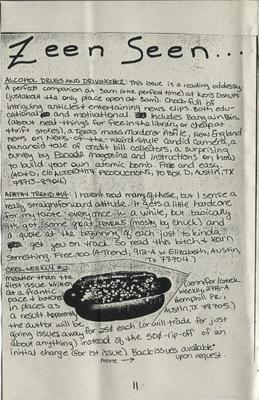 Zeen Seen...
ALCOHOL DRUGS AND DRIVING #2: This issue is a reading oddessy.
A perfect companion at 3am (the perfect time) at Ken's Donuts
(just about the only place open at 3am). Chock full of
intriguing articles + entertaining news clips. Both edu-
cational and motivational. Includes Bargain Bin
(about neat things for free in the library or cheap at
thrift stores), a Texas mass murderer Astfile, New England
news on News of the Weird-style candid banners, a
paranoid tale of credit bill collectors, a surprising
survey by Details magazine and instructions on how
to build your own atomic bomb. Free and easy.
(AD+D, c/o NUTENTITY PRODUCTIONS, PO BOX D, AUSTIN, TX
78713-8904)
APATHY TREND #14: I haven't read many of these, but I sense a
really straightforward attitude. It gets a little hardcore
for my taste every once in a while, but basically
it's got some great (mostly by Chuck) and
a quote at the beginning of each just to kinda
get you on track. So read this bitch + learn
something. Free, too. (A-Trend, 912-A W. Elizabeth, Austin,
TX 78704.)
GEEK WEEKLY #2:
meatier than the
first issue. Written
at a frantic
pace + botched
in places as
a result. Apparently
the author will be
(Jennifer/Geek
Weekly,
Hemphill PK.,
Austin, TX 78705.)
giving issues away for 25¢ each (or will trade for just
about anything) instead of the 50¢-rip-off of an
initial charge (for 1st issue). Back issues available
upon request.
more →
11